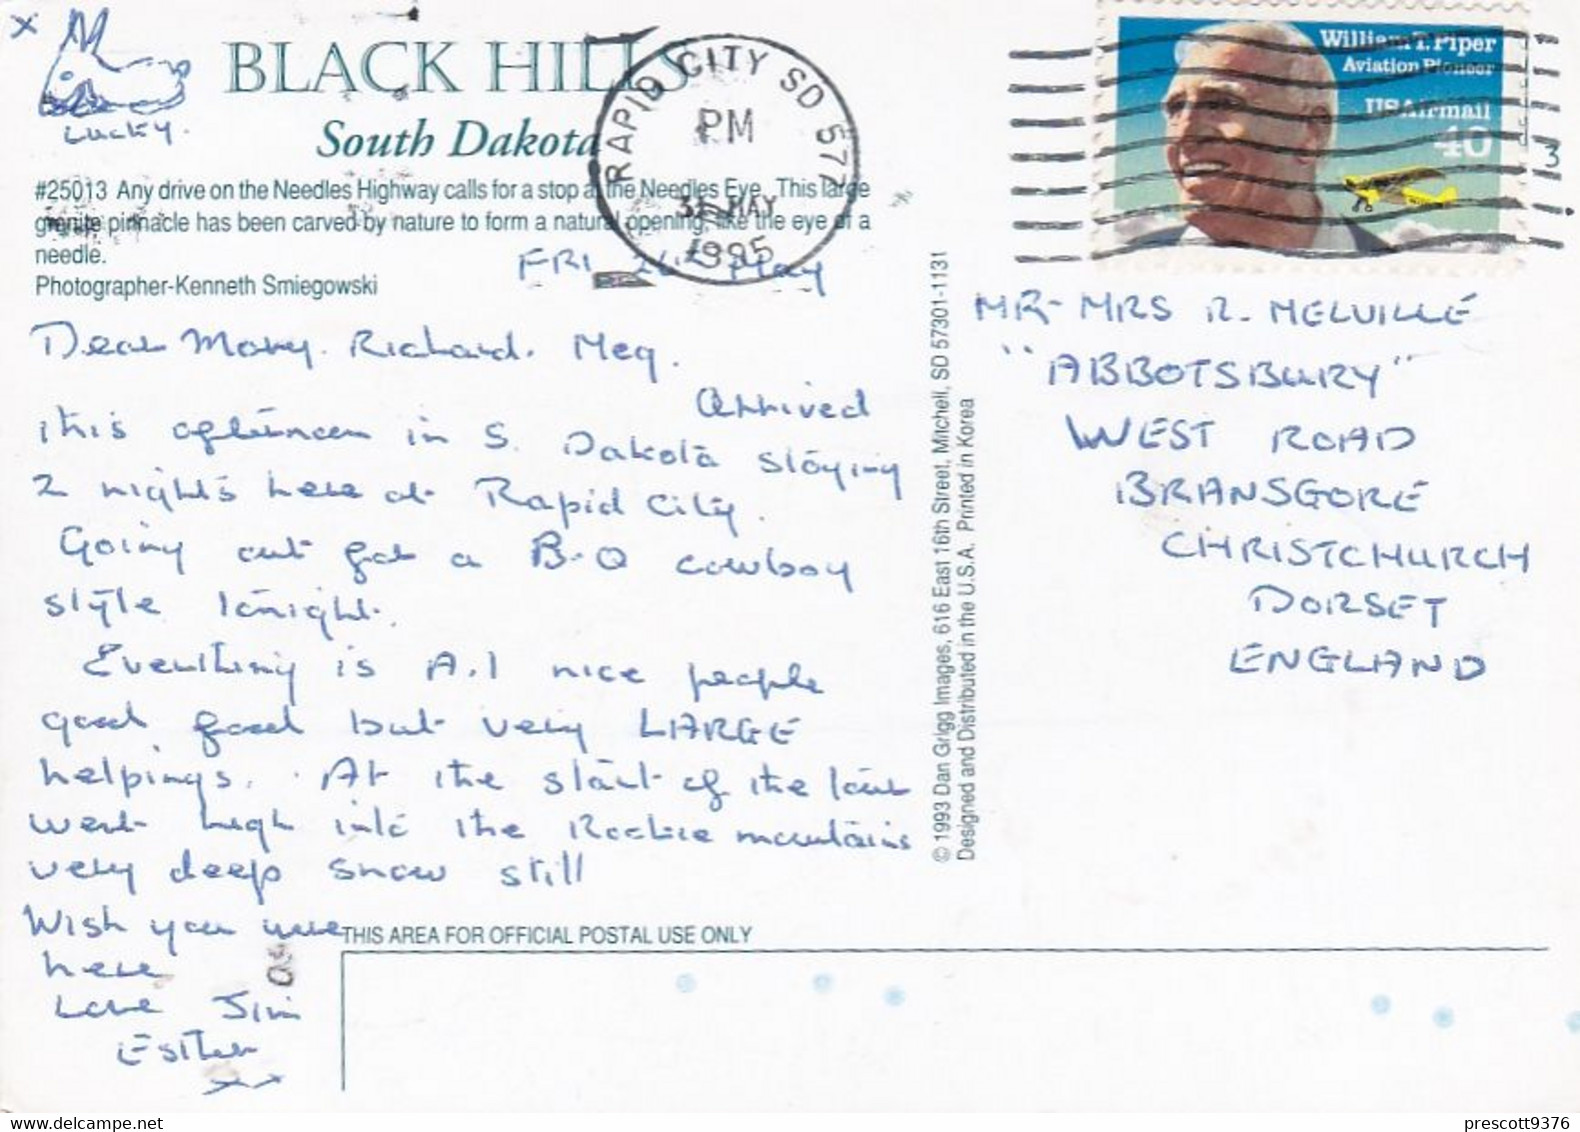 x
Lucky.
BLACK HILLS
South Dakota
#25013 Any drive on the Needles Highway calls for a stop at the Needles Eye. This large
granite pinnacle has been carved by nature to form a natural opening, like the eye of a
needle.
Photographer-Kenneth Smiegowski
RAPID CITY SD 577
PM
31 MAY
1995
William T. Piper
Aviation Pioneer
US Airmail
40
3
FRI 26th May
Dear Mary. Richard. Meg.
Arrived
this afternoon in S. Dakota staying
2 nights here at Rapid City.
Going out for a B-Q cowboy
style tonight.
Everything is A.1 nice people
good food but very LARGE
helpings. At the start of the tour
went high into the Rockie mountains
very deep snow still
Wish you were
here
Love Jim
Esther
xx
© 1993 Dan Grigg Images, 616 East 16th Street, Mitchell, SD 57301-1131
Designed and Distributed in the U.S.A. Printed in Korea
MR- MRS R. MELVILLE
"ABBOTSBURY"
WEST ROAD
BRANSGORE
CHRISTCHURCH
DORSET
ENGLAND
THIS AREA FOR OFFICIAL POSTAL USE ONLY
prescott9376